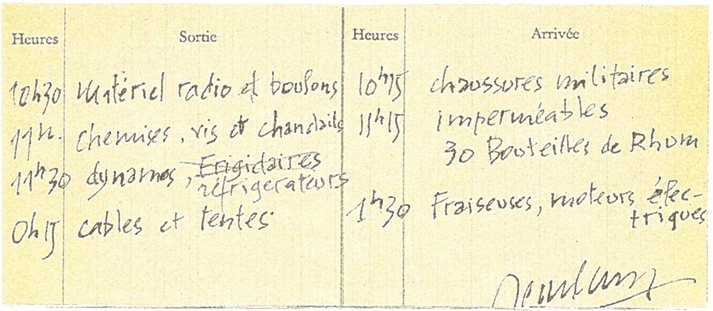 Heures Sortie Heures Arrivée
10h30 Matériel radio et boulons 10h15 chaussures militaires
11h. chemises, vis et chandails 11h15 imperméables
30 Bouteilles de Rhum
11h30 dynamos, Frigidaires
réfrigerateurs
1h30 Fraiseuses, moteurs élec-
triques
0h15 cables et tentes